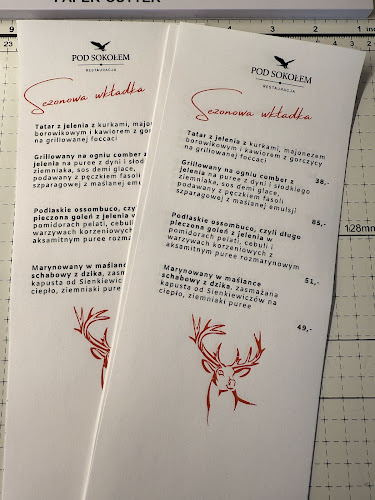 PAPER CUTTER
POD SOKOŁEM
RESTAURACJA
Sezonowa wkładka
Tatar z jelenia z kurkami, majonezem
borowikowym i kawiorem z gorczycy
na grillowanej foccaci
38,-
Grillowany na ogniu comber z
jelenia na puree z dyni i słodkiego
ziemniaka, sos demi glace,
podawany z pęczkiem fasoli
szparagowej z maślanej emulsji
85,-
Podlaskie ossombuco, czyli długo
pieczona goleń z jelenia w
pomidorach pelati, cebuli i
warzywach korzeniowych z
aksamitnym puree rozmarynowym
51,-
Marynowany w maślance
schabowy z dzika, zasmażana
kapusta od Sienkiewiczów na
ciepło, ziemniaki puree
49,-
POD SOKOŁEM
RESTAURACJA
Sezonowa wkładka
Tatar z jelenia z kurkami, majone
borowikowym i kawiorem z gorc
na grillowanej foccaci
Grillowany na ogniu comber z
jelenia na puree z dyni i słodk
ziemniaka, sos demi glace,
podawany z pęczkiem fasoli
szparagowej z maślanej emu
Podlaskie ossombuco, czyli
pieczona goleń z jelenia w
pomidorach pelati, cebuli
warzywach korzeniowych
aksamitnym puree rozma
Marynowany w maślance
schabowy z dzika, zasma
kapusta od Sienkiewicz
ciepło, ziemniaki puree
128mm